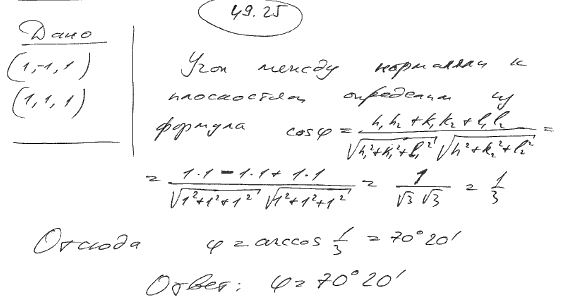 49.25
Дано
(1,-1,1)
(1,1,1)
Угол между нормалями к
плоскостям определим из
формула cosφ = (h₁h₂ + k₁k₂ + l₁l₂) / (√(h₁²+k₁²+l₁²) √(h²+k₂²+l₂²)) =
= (1·1 - 1·1 + 1·1) / (√(1²+1²+1²) √(1²+1²+1²)) = 1 / (√3 √3) = 1/3
Отсюда φ = arccos 1/3 = 70°20'
Ответ: φ = 70°20'